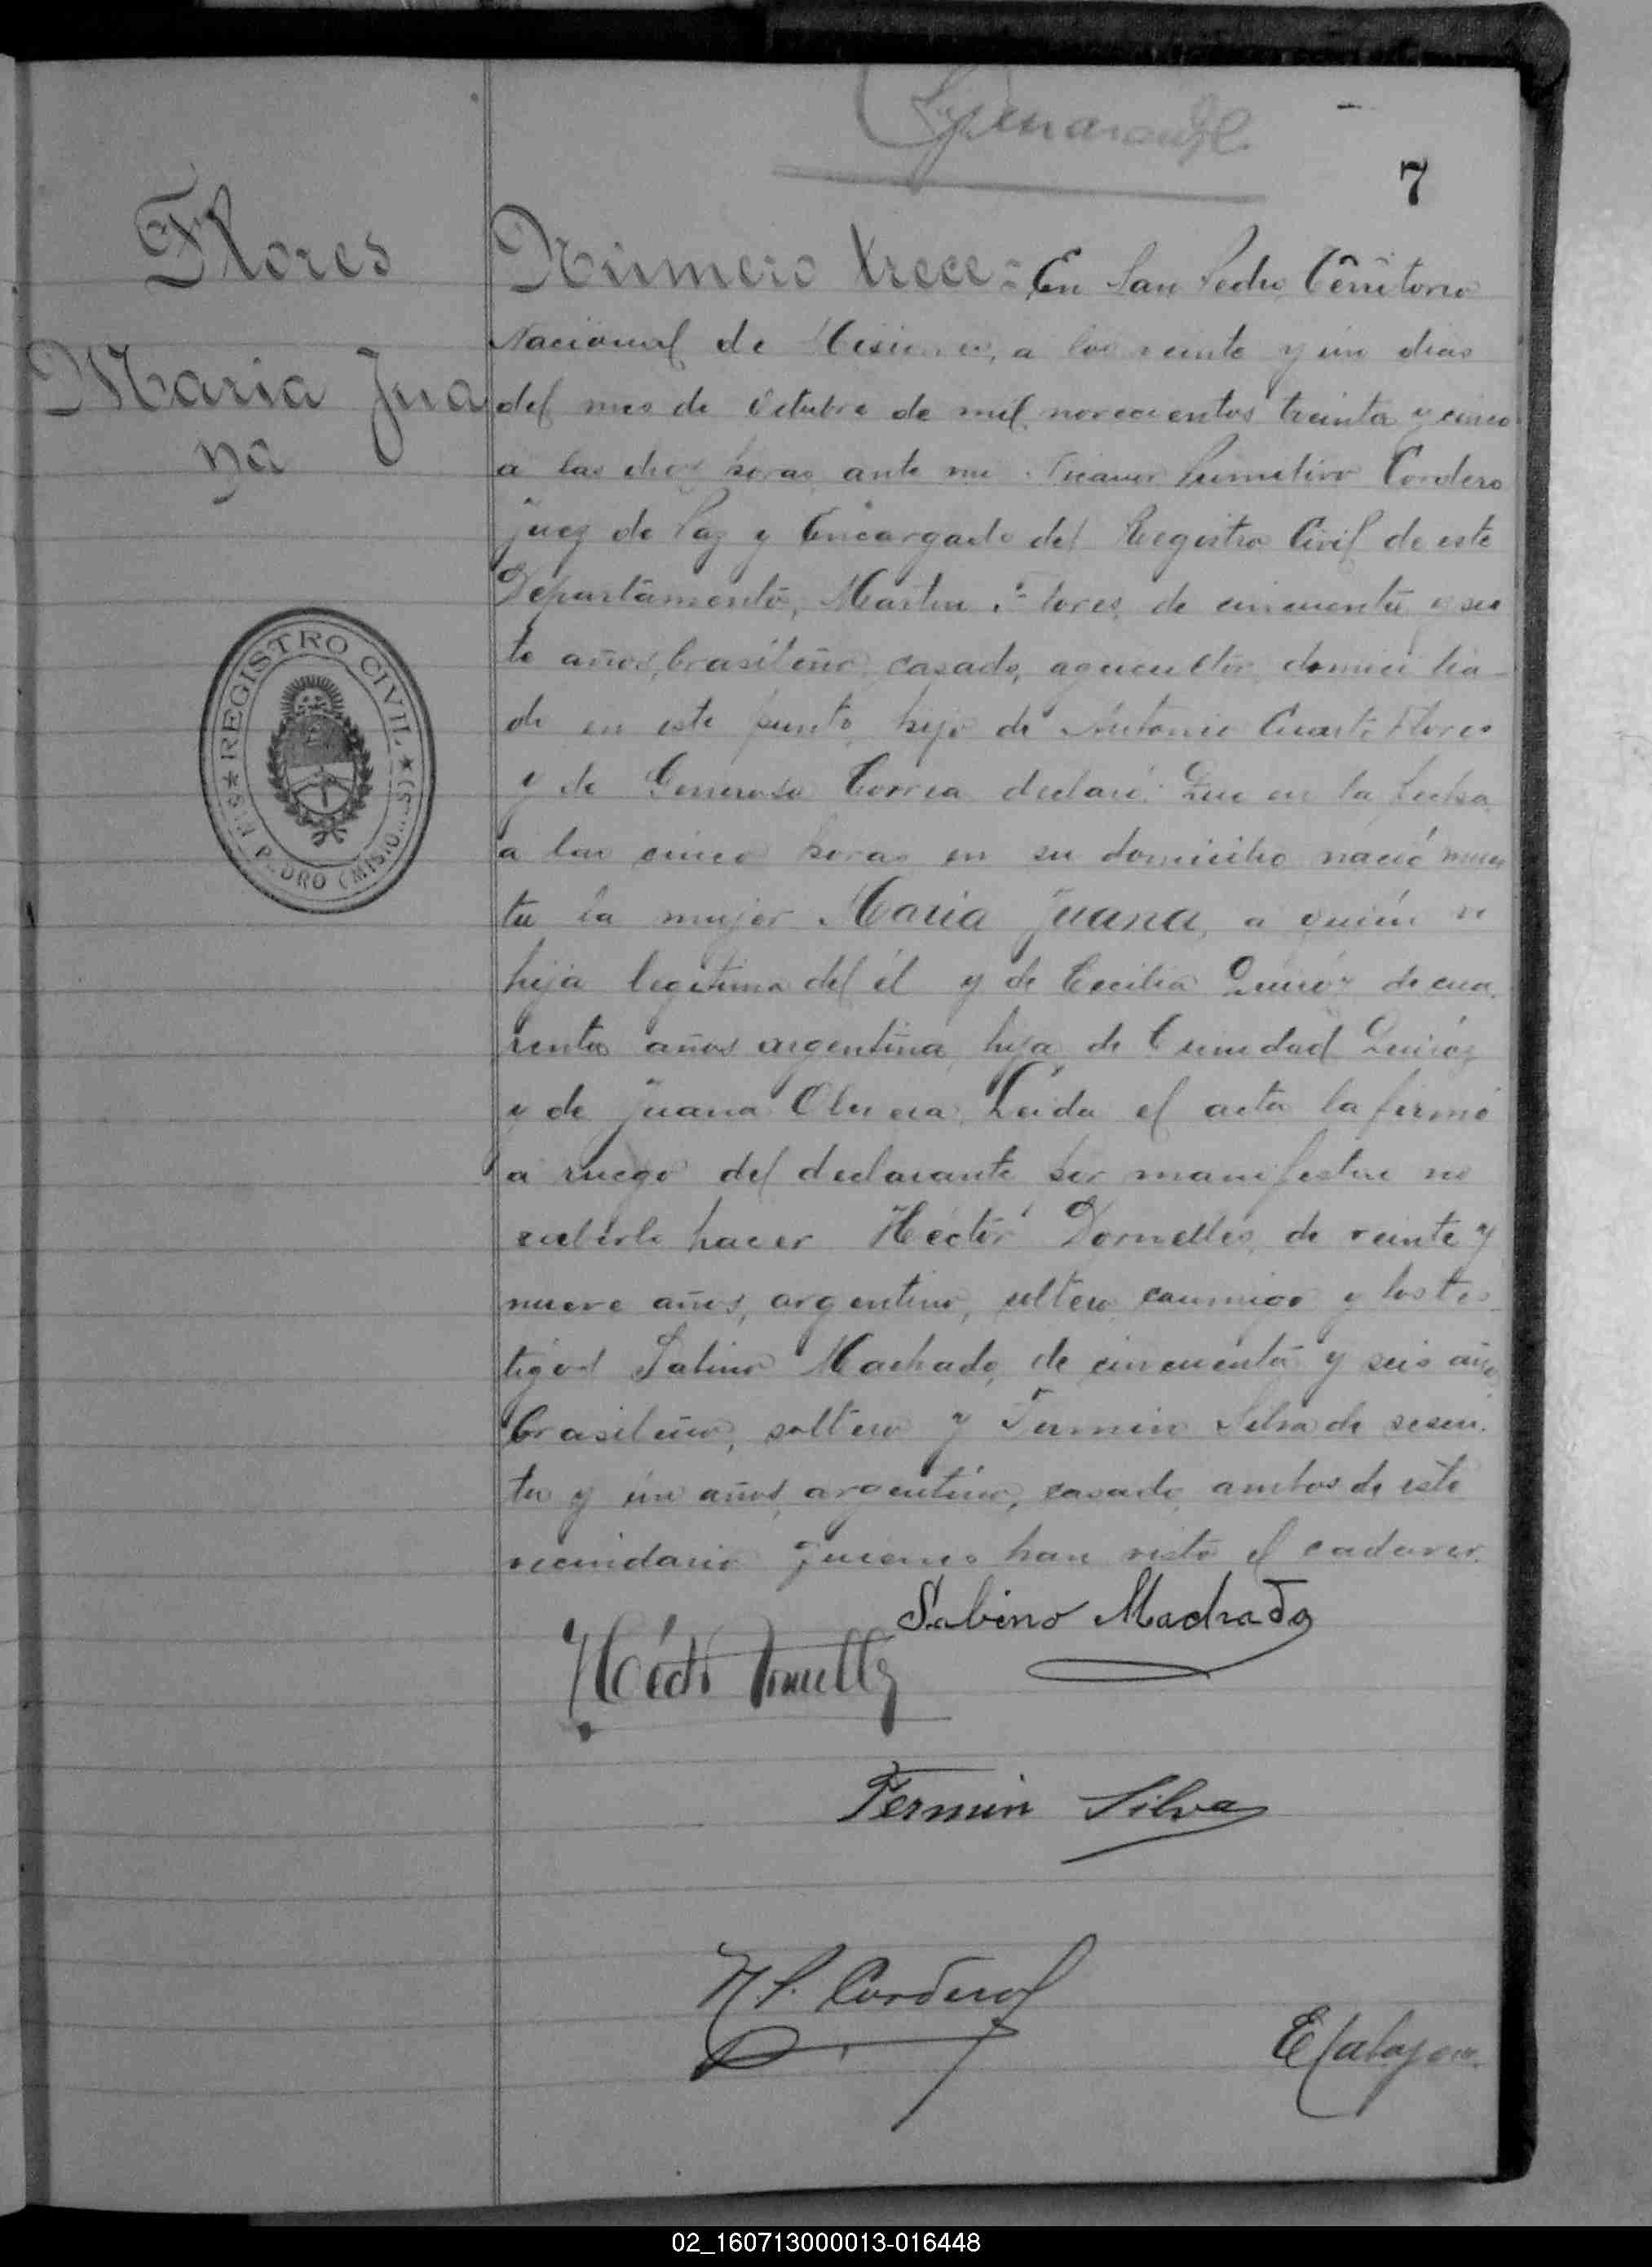 7
Flores
Maria Jua
na
REGISTRO CIVIL
SAN PEDRO (MISIONES)
Número trece = En San Pedro, Territorio
Nacional de Misiones, a los veinte y ún dias
del mes de Octubre de mil novecientos treinta y cinco
a las diez horas ante mi Nicanor Primitivo Cordero
Juez de Paz y Encargado del Registro Civil de este
Departamento, Martin Flores, de cincuenta y sie
te años, brasileño, casado, agricultor, domicilia-
do en este punto, hijo de Antonio Flores
y de Correa declaró: Que en la fecha
a las cinco horas en su domicilio nació muer
ta la mujer Maria Juana, a quién vi
hija legitima del él y de Cecilia Quiróz de cua
renta años argentina, hija de Quiróz
y de Juana Leida el acta la firmó
a ruego del declarante por manifestar no
saberlo hacer Héctor Dornelles, de veinte y
nueve años, argentino, soltero, conmigo y los tes-
tigos Sabino Machado, de cincuenta y seis años
brasileño, soltero y Fermin Silva de sesen-
ta y ún años, argentino, casado, ambos de este
vecindario quienes han visto el cadaver.
Sabino Machado
Héctor Dornelles
Fermin Silva
N. P. Cordero
02_160713000013-016448